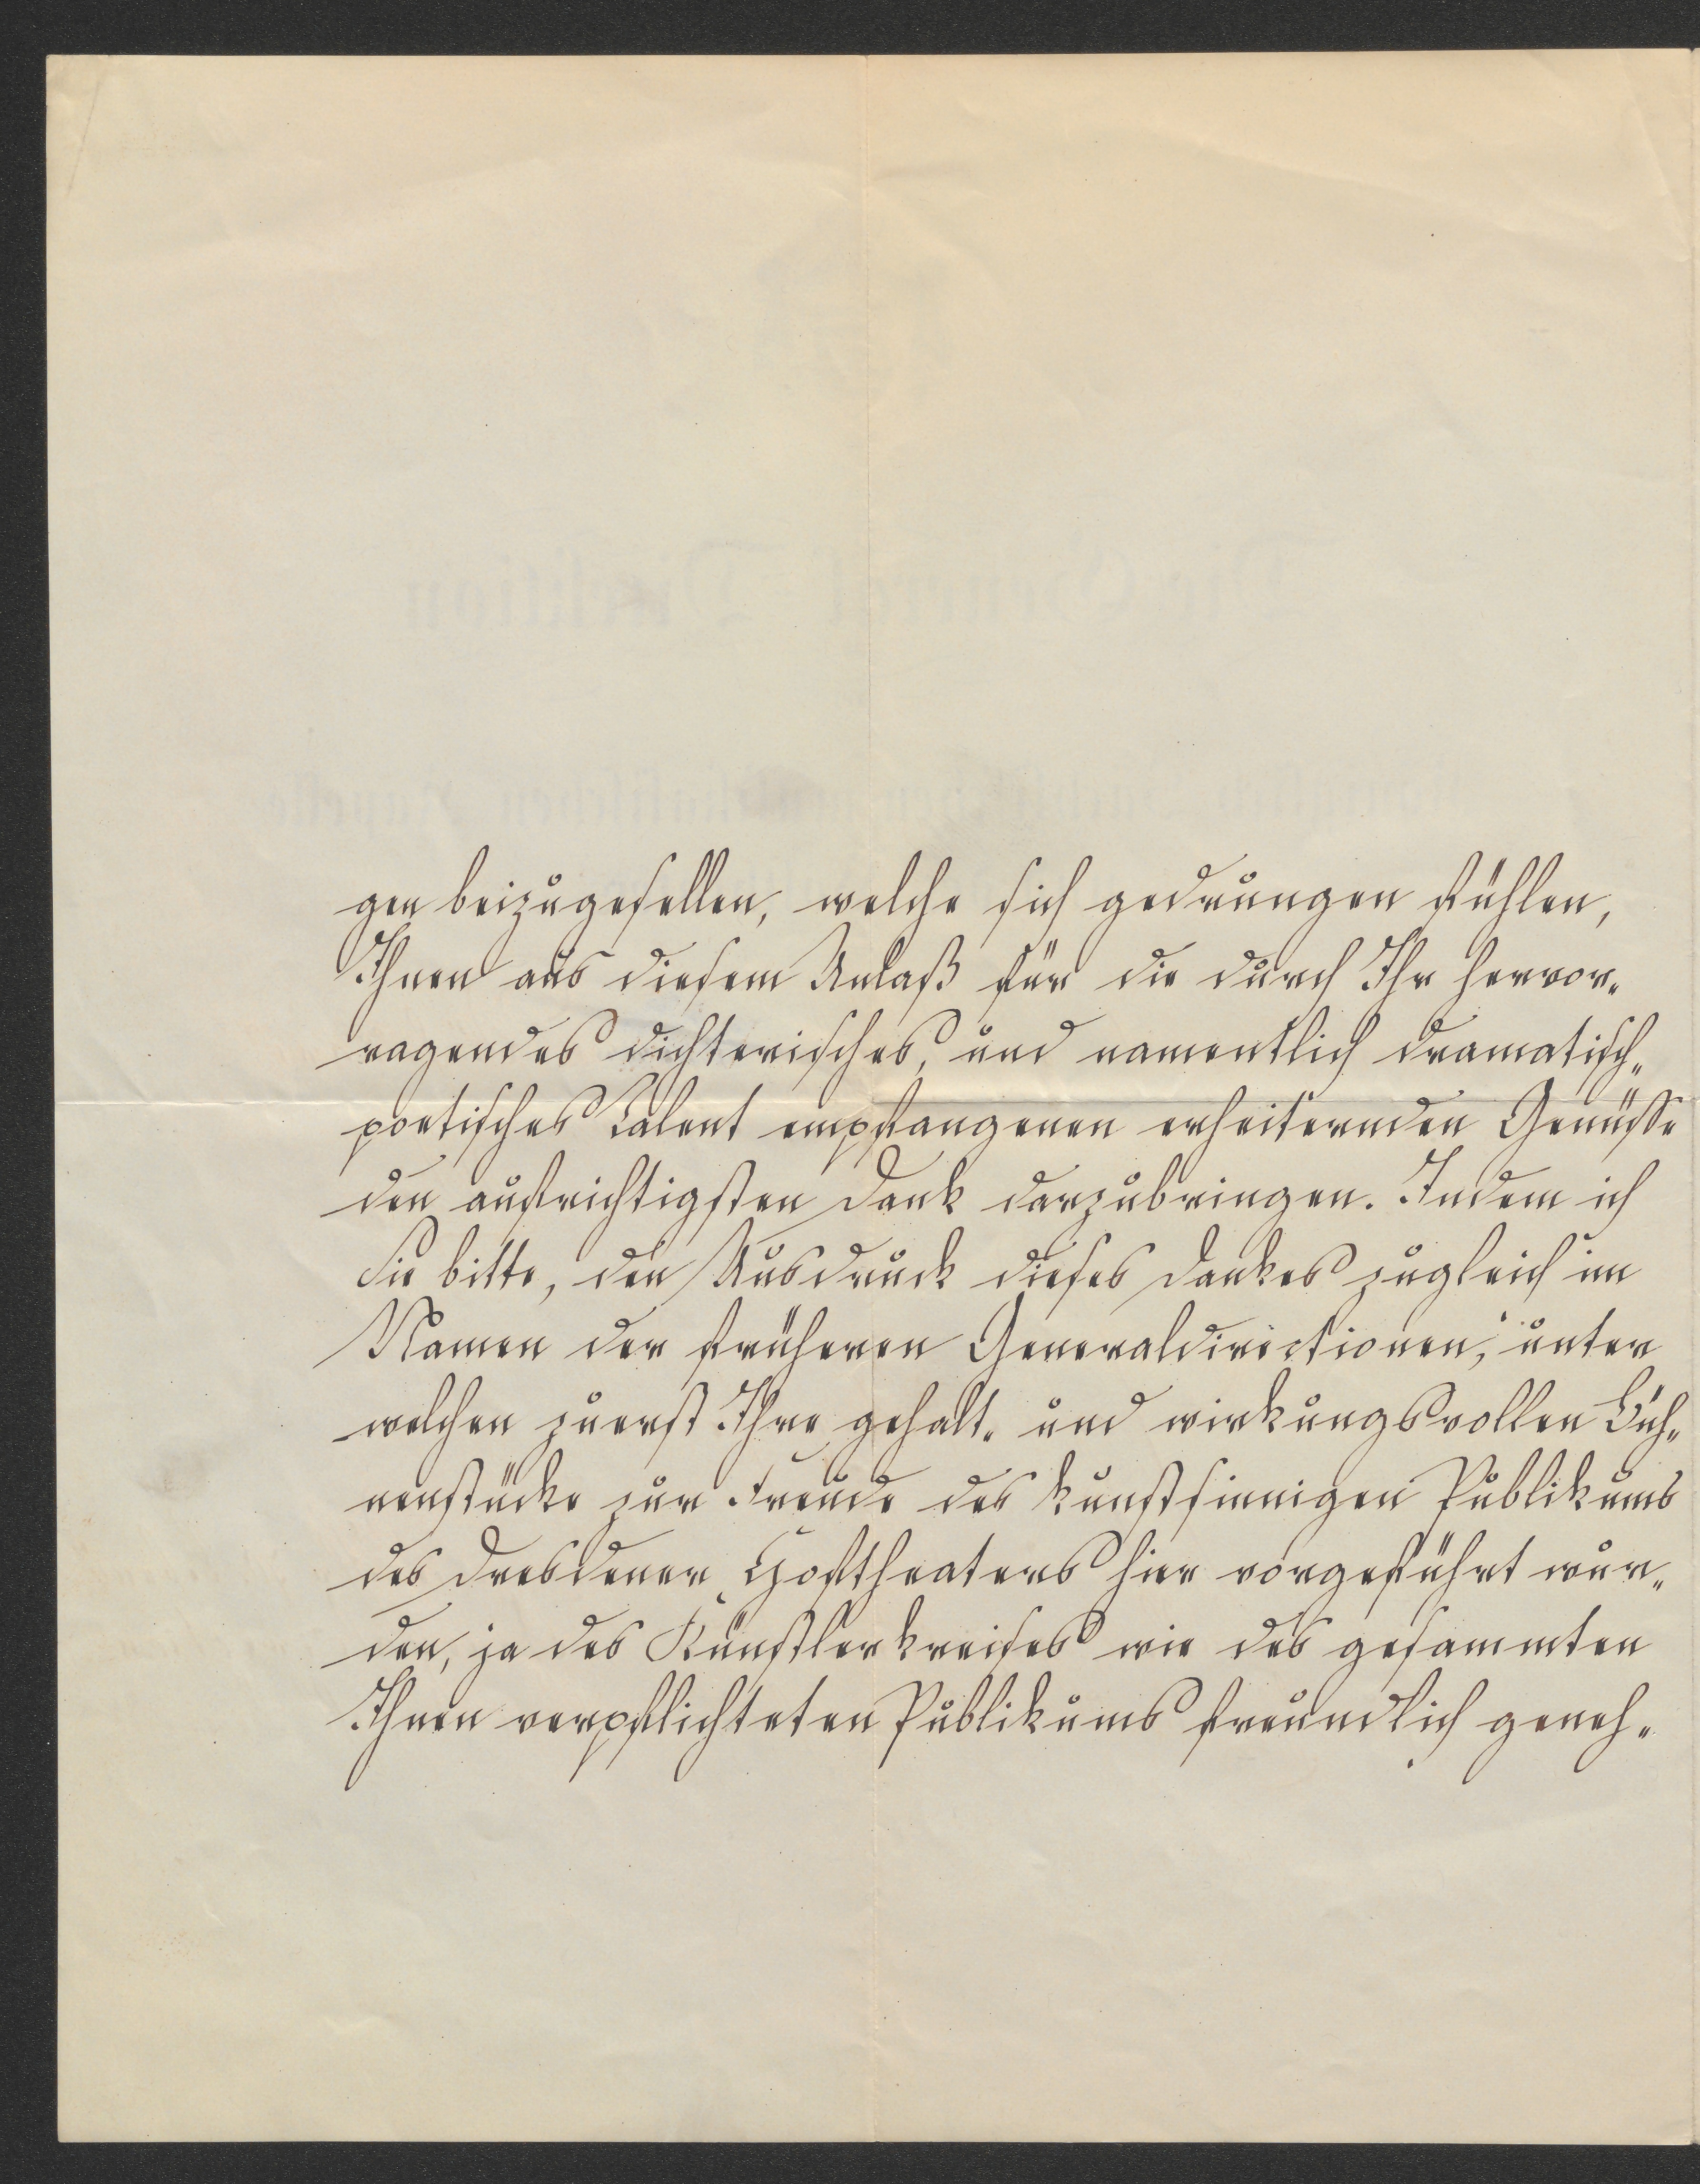 gen beizugesellen, welche sich gedrungen fühlen,
Ihnen aus diesem Anlaß für die durch Ihr hervor-
ragendes dichterisches, und namentlich dramatisch-
poetisches Talent empfangenen erheiternden Genüsse
den aufrichtigsten Dank darzubringen. Indem ich
Sie bitte, den Ausdruck dieses Dankes zugleich im
Namen der früheren Generaldirectionen, unter
welchen zuerst Ihre gehalt- und wirkungsvollen Büh-
nenstücke zur Freude des kunstsinnigen Publikums
des Dresdener Hoftheaters hier vorgeführt wur-
den, ja des Künstlerkreises wie des gesammten
Ihnen verpflichteten Publikums freundlich geneh-